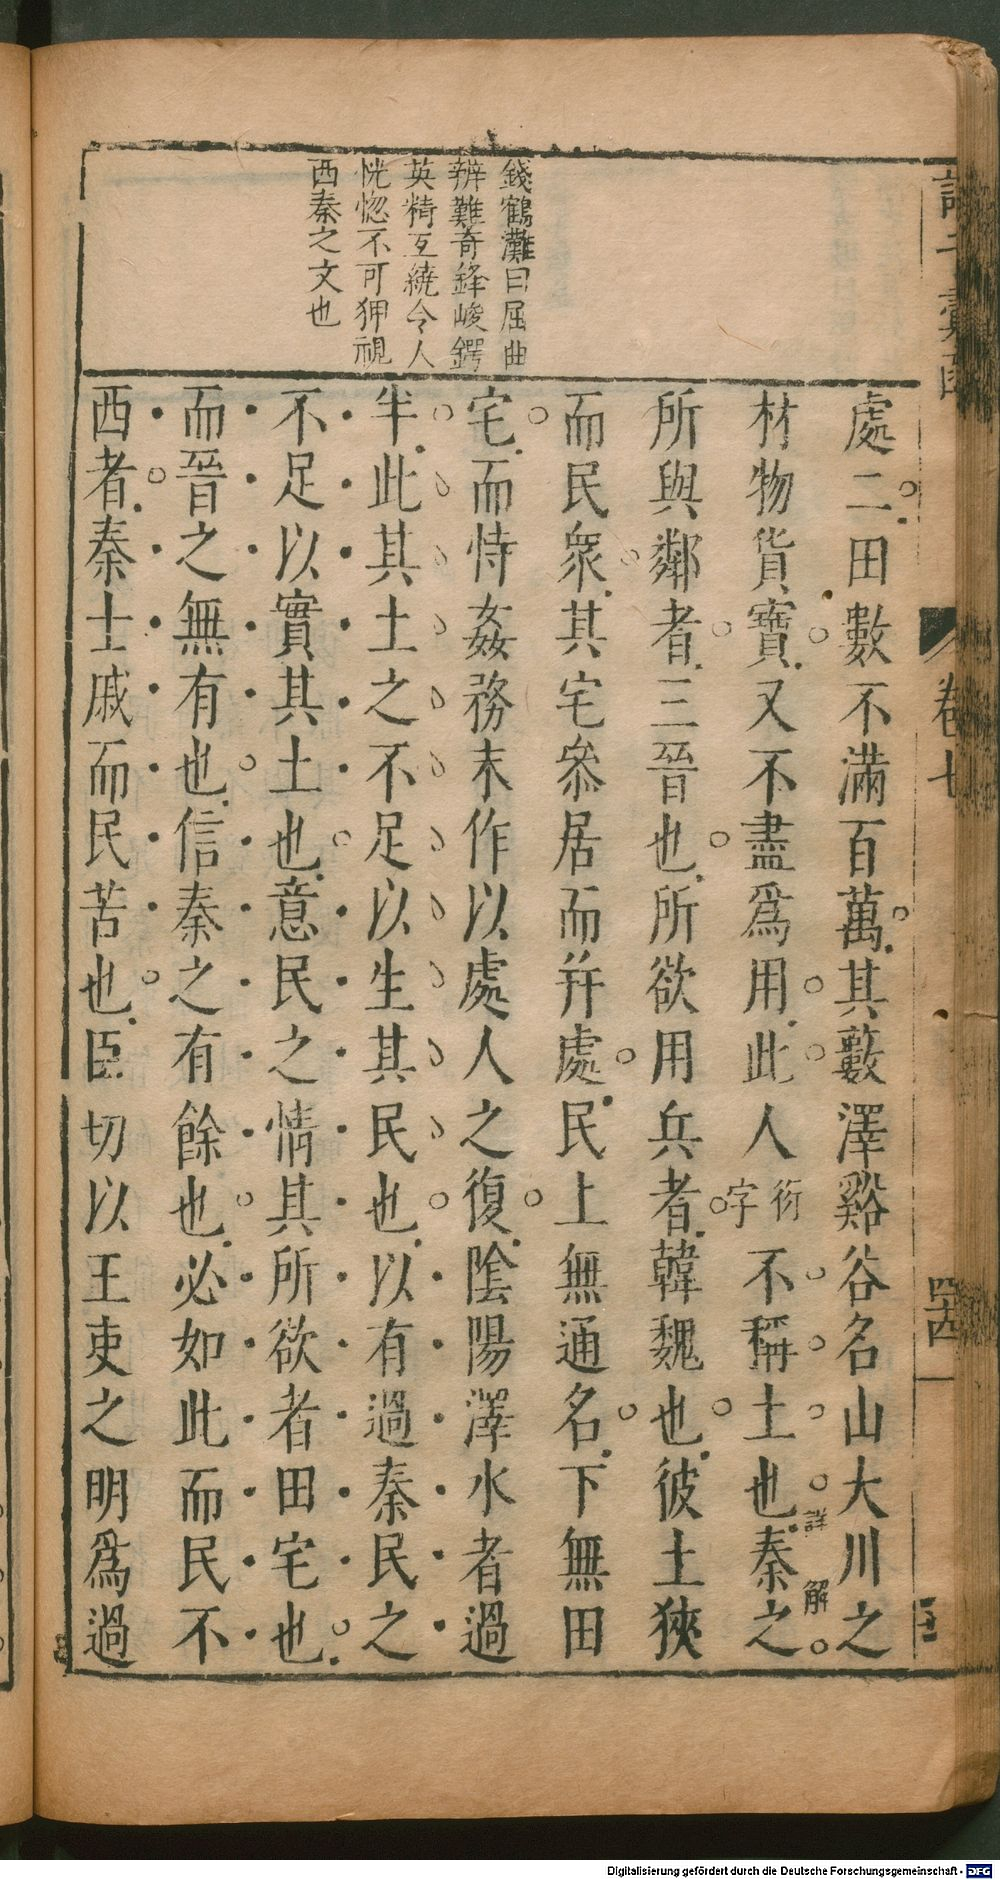 錢鶴灘曰屈曲
辨難奇鋒峻鍔
英精互繞令人
恍惚不可狎視
西秦之文也
處二田數不滿百萬其藪澤谿谷名山大川之
材物貨寶又不盡爲用此人衍字不稱土也秦之
詳解
所與鄰者三晉也所欲用兵者韓魏也彼土狹
而民衆其宅叅居而幷處民上無通名下無田
宅而恃姦務末作以處人之復陰陽澤水者過
半此其土之不足以生其民也以有過秦民之
不足以實其土也意民之情其所欲者田宅也
而晉之無有也信秦之有餘也必如此而民不
西者秦士戚而民苦也臣切以王吏之明爲過
卷七
Digitalisierung gefördert durch die Deutsche Forschungsgemeinschaft - DFG